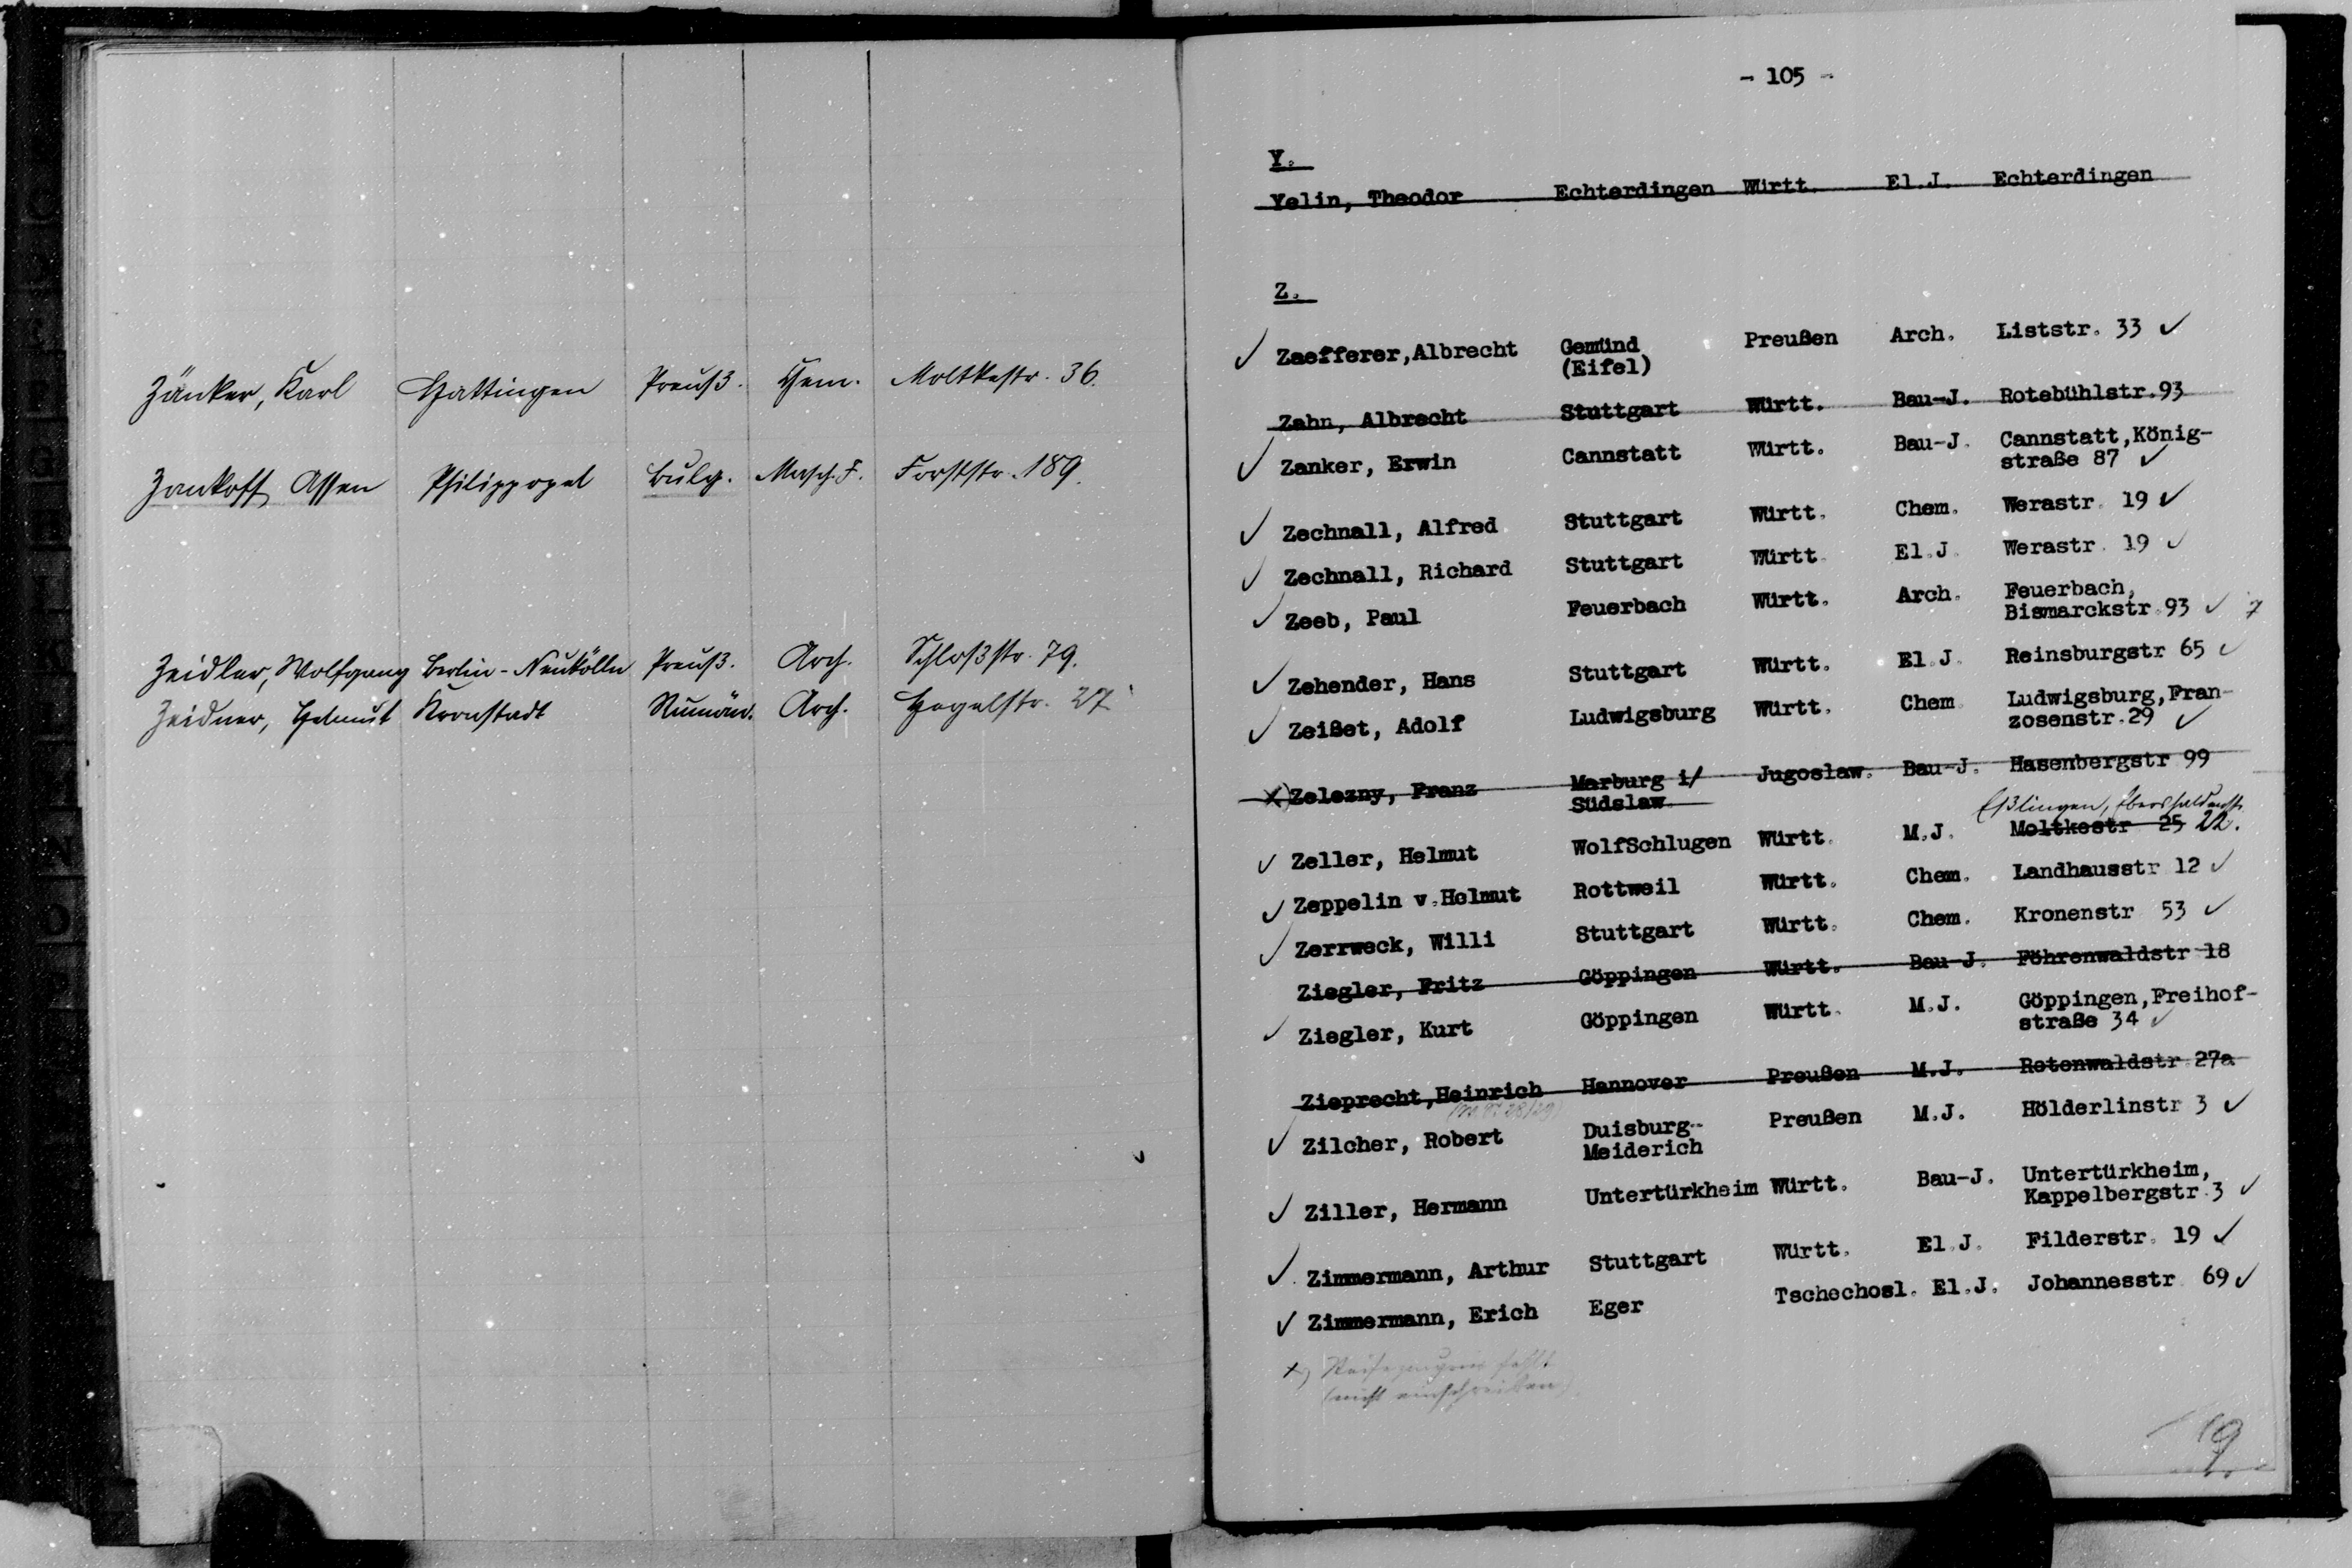 Zänker, Karl Hattingen Preuß. Chem. Moltkestr. 36.
Zankoff, Assen Philippopel Bulg. Masch.I. Forststr. 189.
Zeidler, Wolfgang Berlin-Neukölln Preuß. Arch. Schloßstr. 79.
Zeidner, Helmut Kronstadt Rumän. Arch. Hegelstr. 27
- 105 -
Y.
Yelin, Theodor Echterdingen Württ. El.J. Echterdingen
Z.
✓ Zaefferer,Albrecht Gemünd Preußen Arch. Liststr. 33 ✓
(Eifel)
Zahn, Albrecht Stuttgart Württ. Bau-J. Rotebühlstr.93
✓ Zanker, Erwin Cannstatt Württ. Bau-J. Cannstatt,König-
straße 87 ✓
✓ Zechnall, Alfred Stuttgart Württ. Chem. Werastr. 19 ✓
✓ Zechnall, Richard Stuttgart Württ El.J. Werastr. 19 ✓
✓ Zeeb, Paul Feuerbach Württ. Arch. Feuerbach,
Bismarckstr.93 ✓ 7
✓ Zehender, Hans Stuttgart Württ. El.J. Reinsburgstr 65 ✓
✓ Zeißet, Adolf Ludwigsburg Württ. Chem Ludwigsburg,Fran-
zosenstr.29 ✓
x) Zelezny, Franz Marburg i/ Jugoslaw. Bau-J. Hasenbergstr 99
Südslaw.
Eßlingen,
✓ Zeller, Helmut WolfSchlugen Württ. M.J. Moltkestr 25 22.
✓ Zeppelin v.Helmut Rottweil Württ. Chem. Landhausstr 12 ✓
✓ Zerrweck, Willi Stuttgart Württ. Chem. Kronenstr 53 ✓
Ziegler, Fritz Göppingen Württ. Bau-J. Föhrenwaldstr 18
✓ Ziegler, Kurt Göppingen Württ. M.J. Göppingen,Freihof-
straße 34 ✓
Zieprecht,Heinrich Hannover Preußen M.J. Rotenwaldstr.27a
✓ Zilcher, Robert Duisburg- Preußen M.J. Hölderlinstr 3 ✓
Meiderich
✓ Ziller, Hermann Untertürkheim Württ. Bau-J. Untertürkheim,
Kappelbergstr.3 ✓
✓ Zimmermann, Arthur Stuttgart Württ. El.J. Filderstr. 19 ✓
✓ Zimmermann, Erich Eger Tschechosl. El.J. Johannesstr 69 ✓
x) Reifezeugnis fehlt
(nicht einschreiben)
19